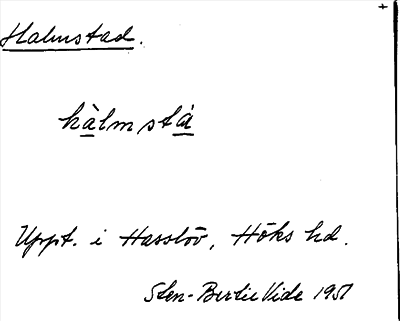 Halmstad.
hàlmstá
Uppt. i Hasslöv, Höks hd.
Sten-Bertil Vide 1951